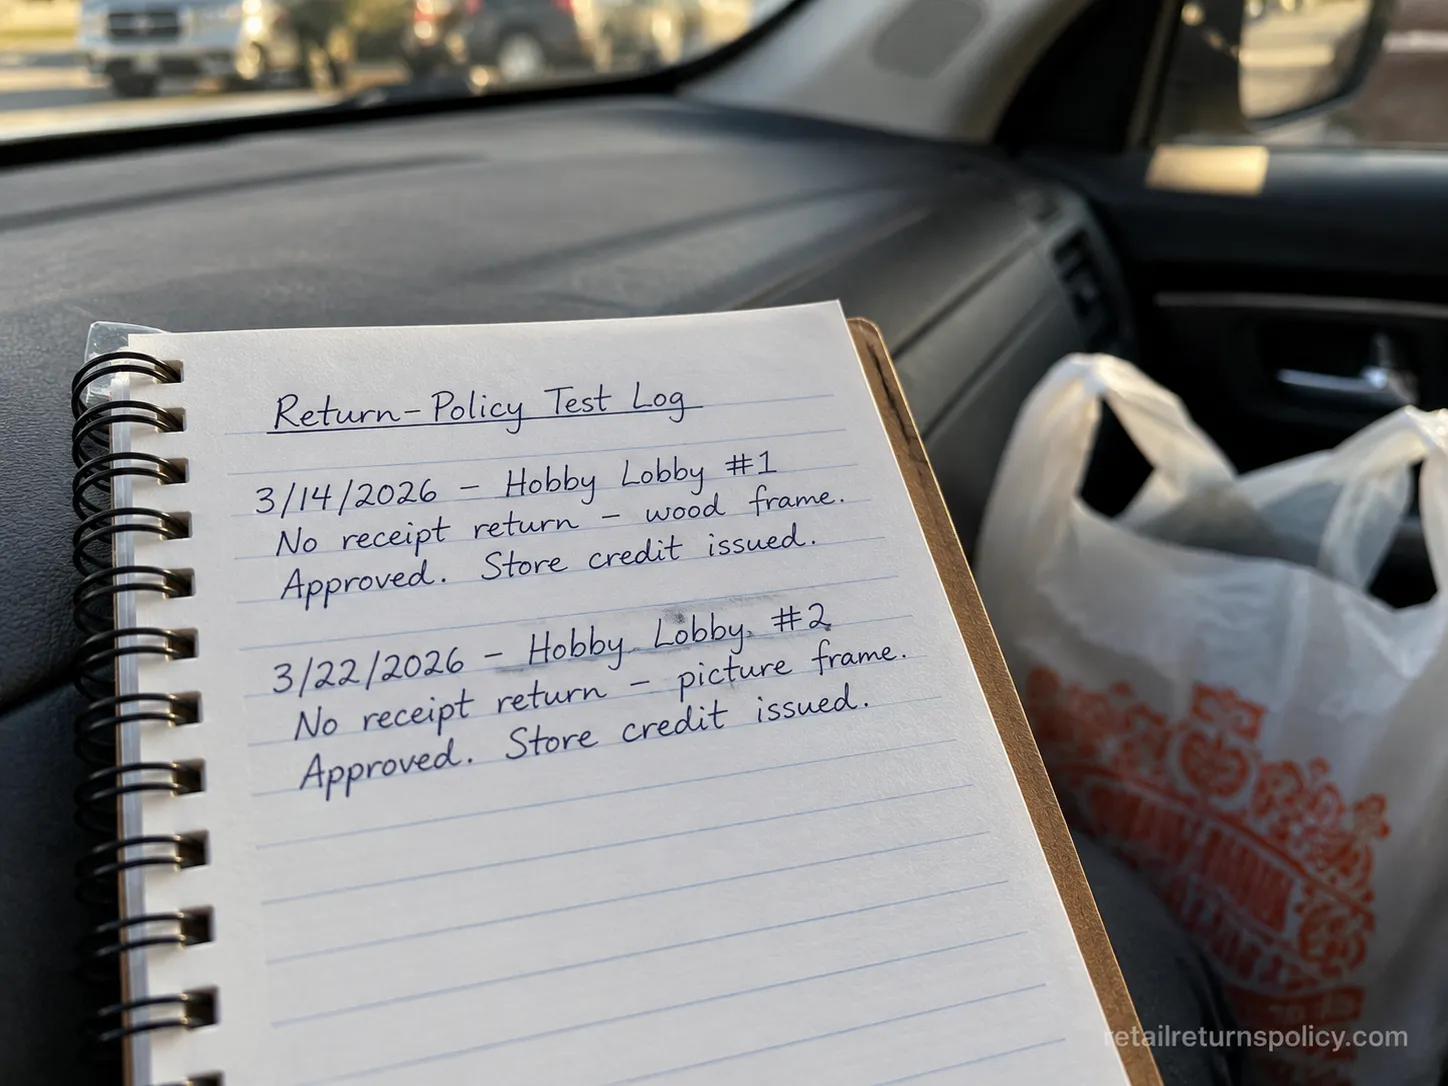 Return-Policy Test Log
3/14/2026 – Hobby Lobby #1
No receipt return – wood frame.
Approved. Store credit issued.
3/22/2026 – Hobby Lobby #2
No receipt return – picture frame.
Approved. Store credit issued.
retailreturnspolicy.com